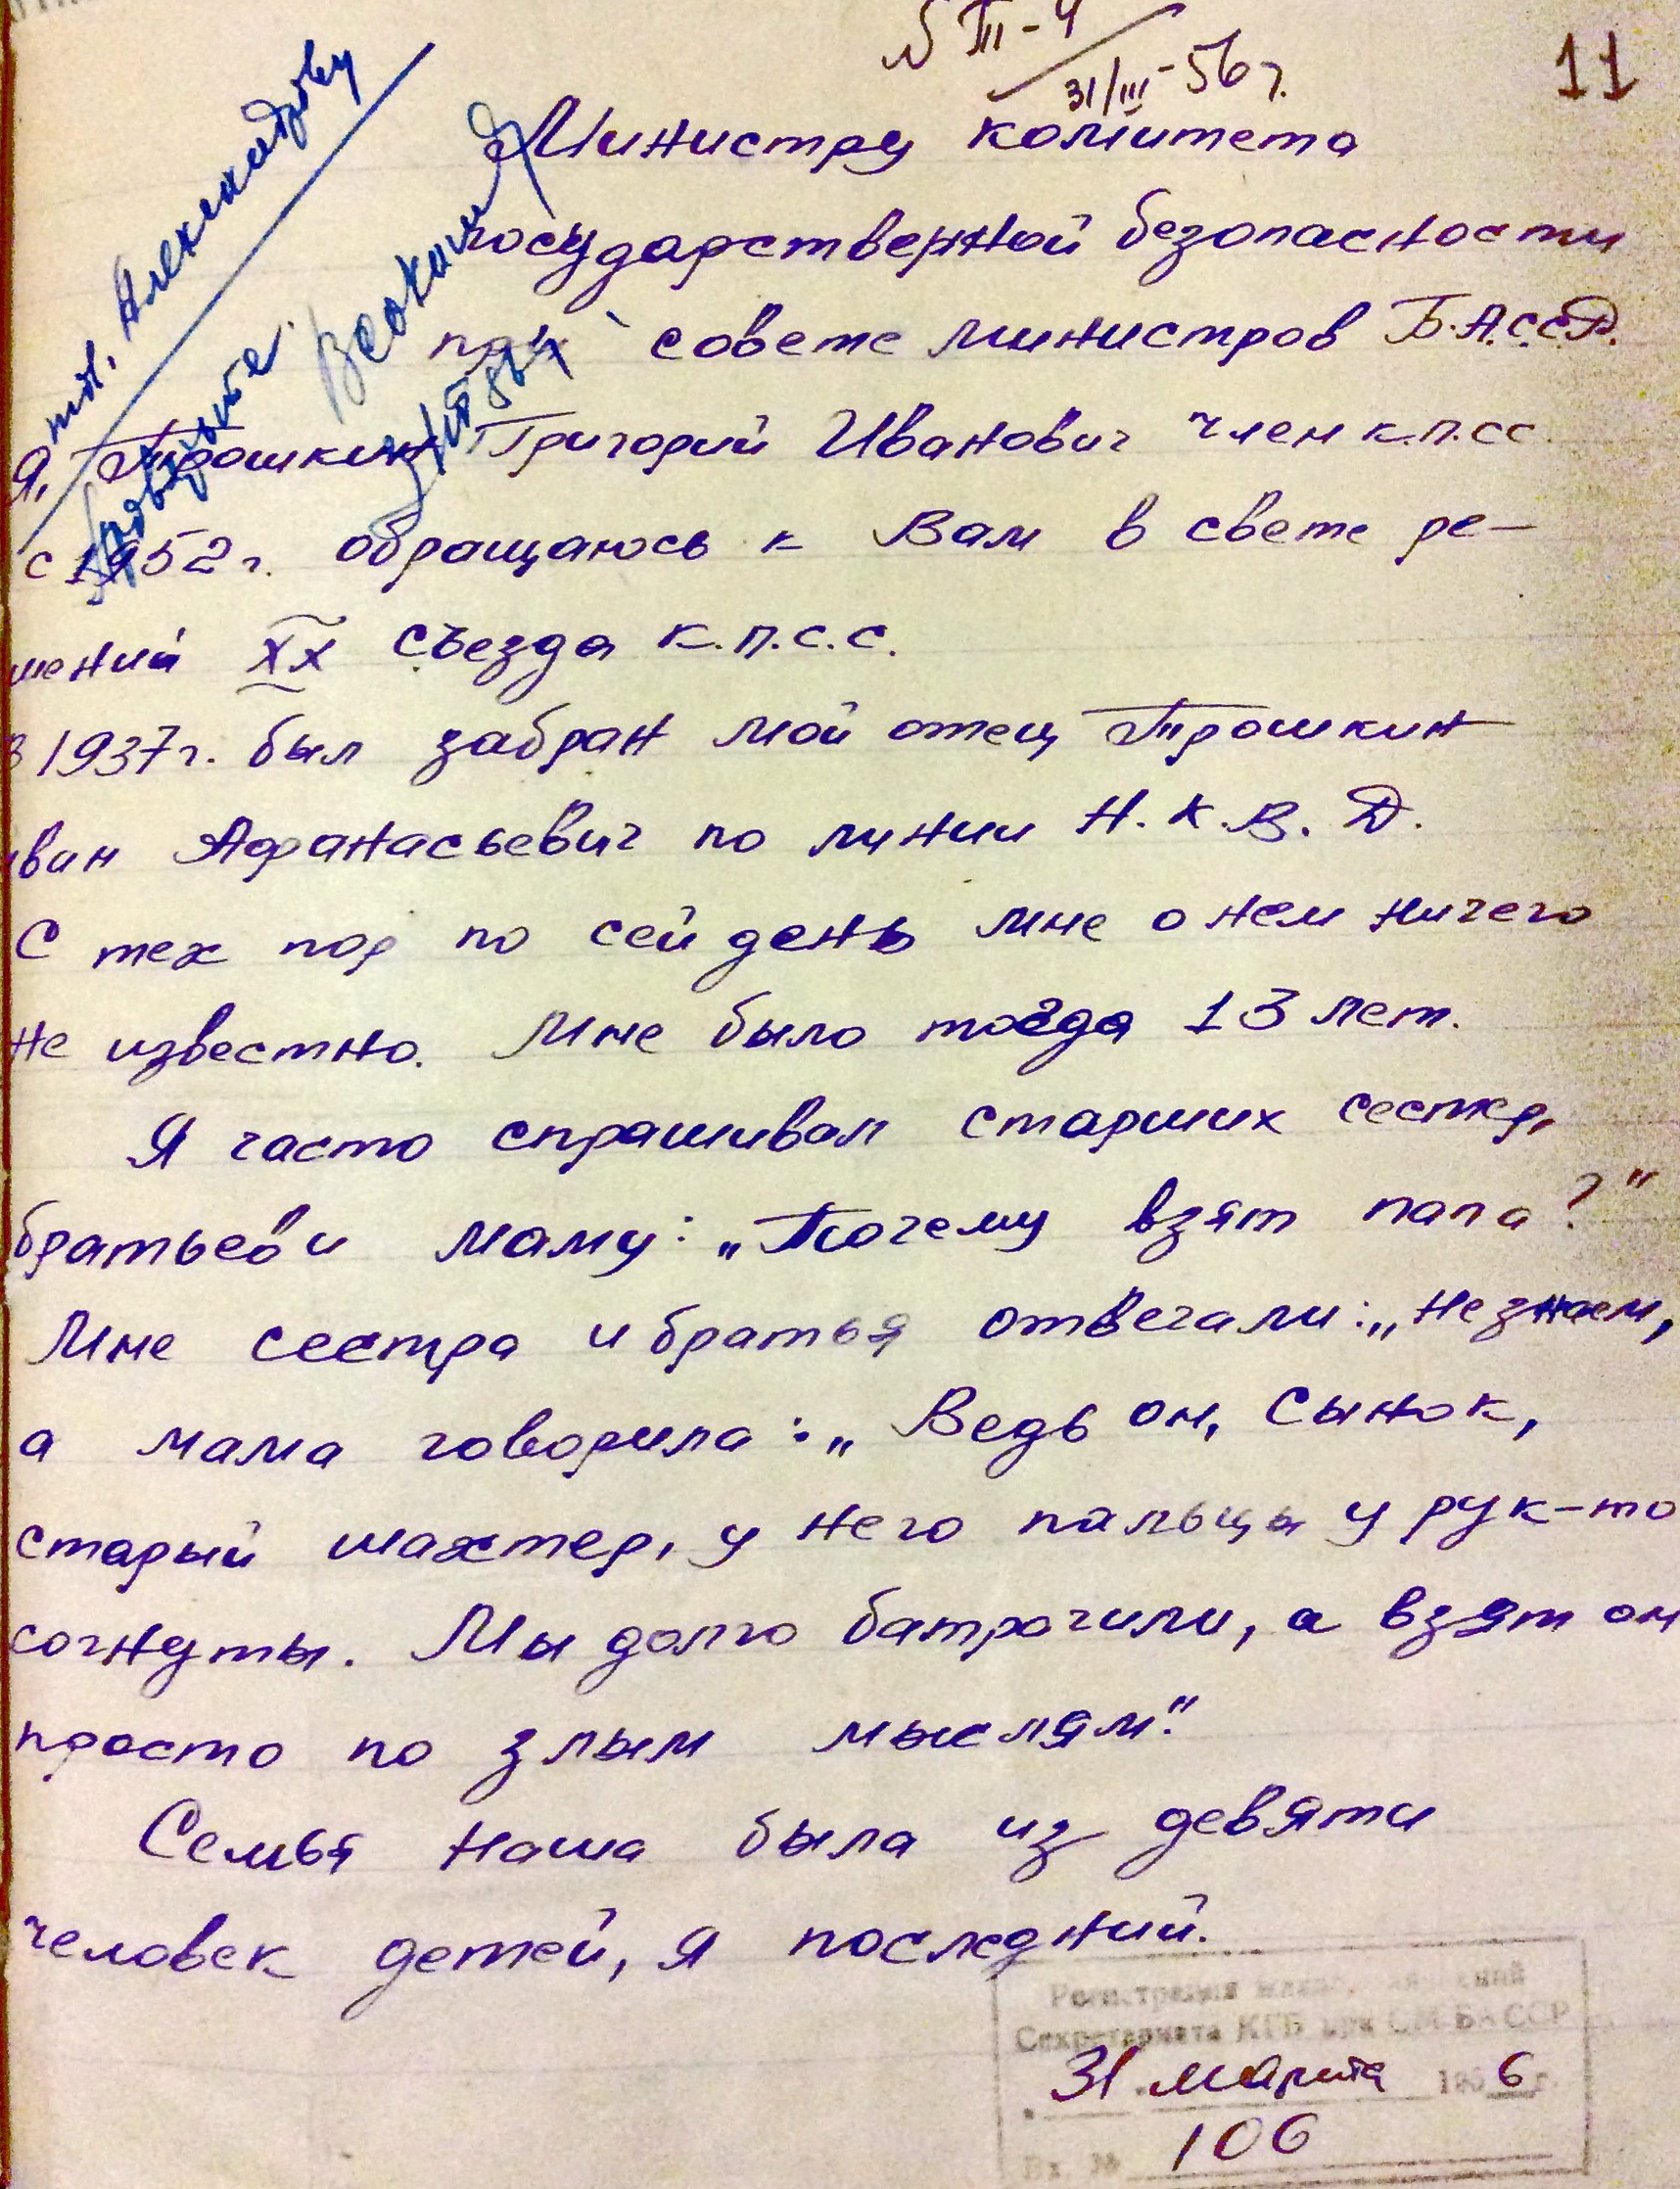 № III-4
31/III-56 г.
11
тов. Александрову
Министру комитета
государственной безопасности
при совете министров Б.А.С.С.Р.
Я, Трошкин Григорий Иванович член к.п.сс.
с 1952 г. обращаюсь к Вам в свете ре-
шений XX съезда К.П.С.С.
в 1937 г. был забран мой отец Трошкин
Иван Афанасьевич по линии Н.К.В.Д.
С тех пор по сей день мне о нем ничего
не известно. Мне было тогда 13 лет.
Я часто спрашивал старших сестер,
братьев и маму: „Почему взят папа?"
Мне сестра и братья отвечали: „Не знаем,
а мама говорила: „Ведь он, сынок,
старый шахтер, у него пальцы у рук-то
согнуты. Мы долго батрачили, а взят он
просто по злым мыслям."
Семья наша была из девяти
человек детей, я последний.
Регистрация
Секретариата КГБ при СМ БАССР
31 марта 1956 г.
Вх. № 106